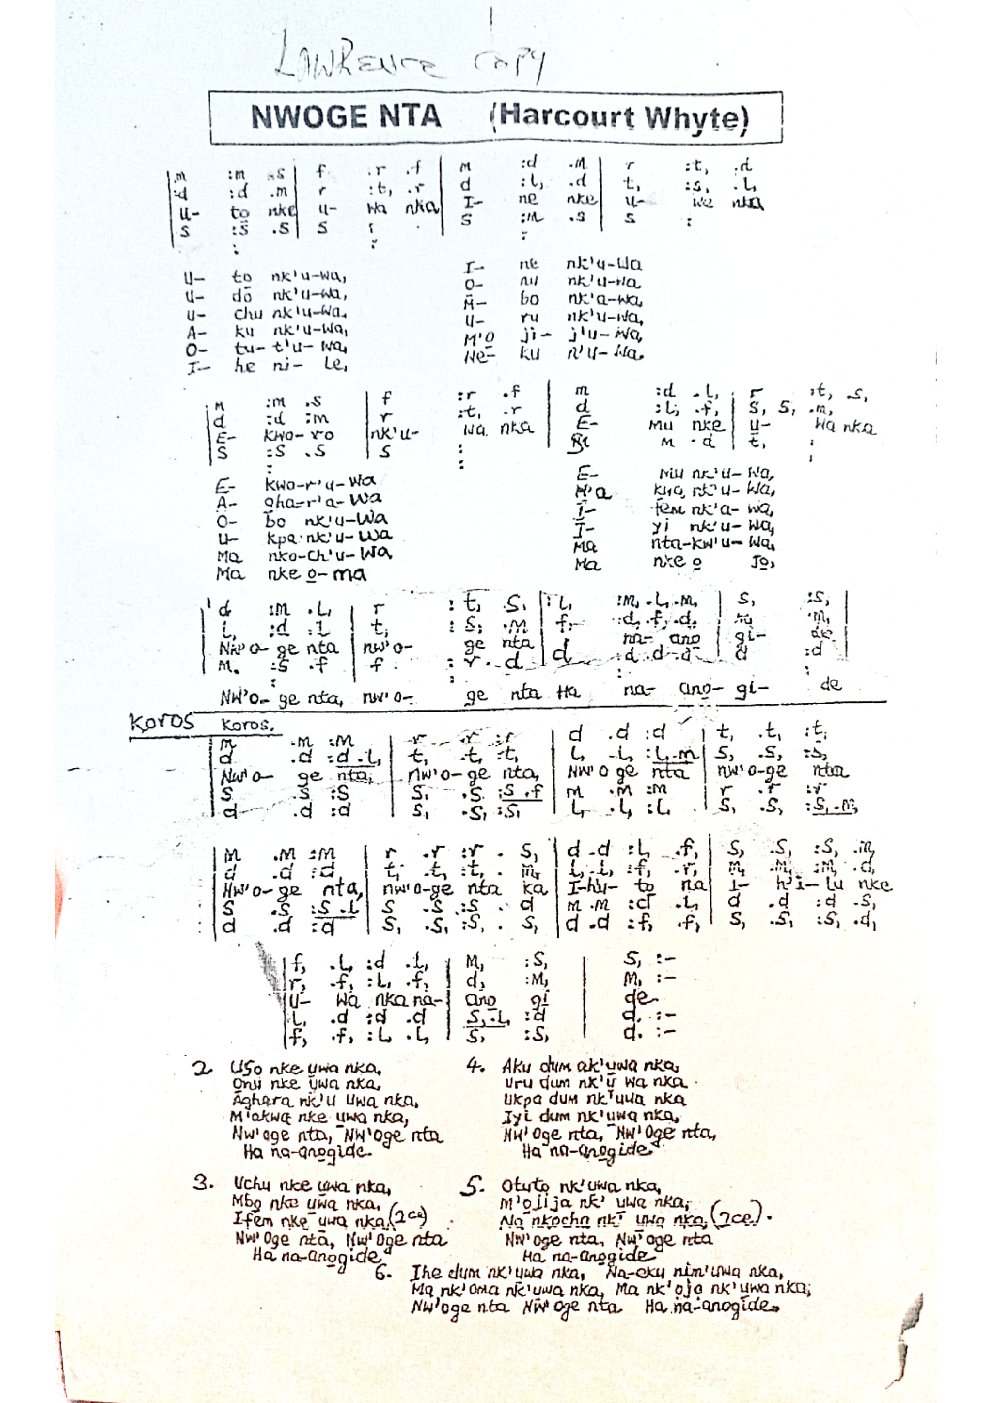 LAWRENCE COPY
NWOGE NTA (Harcourt Whyte)
m :m .s | f :r .f | m :d .m | r :t, .d
d :d .m | r :t, .r | d :l, .d | t, :s, .l,
U- to nke | u- wa nka | I- ne nke | u- we nka
S :s .s | s r | S :m .s | s :
U- to nk'u-wa, I- ne nk'u-wa
U- do nk'u-wa, O- nu nk'u-wa
U- chu nk'u-wa, M- bo nk'a-wa,
A- ku nk'u-wa, U- ru nk'u-wa,
O- tu-t'u-wa, M'o ji- j'u-wa,
I- he ni- le, Ne- ku n'u-wa.
m :m .s | f :r .f | m :d .l, | r :t, .s,
d :d :m | r :t, .r | d :l, .f, | s, s, .m,
E- kwo-ro | nk'u- wa nka | E- mu nke | u- wa nka
S :s .s | s m .d | t, :
E- kwo-r'u-wa E- mu nk'u-wa,
A- gha-r'a-wa M'a kwa nk'u-wa,
O- bo nk'u-wa I- fem nk'a-wa,
U- kpa nk'u-wa I- yi nk'u-wa,
Ma nko-ch'u-wa Ma nta-kw'u-wa,
Ma nke o-ma Ma nke o jo,
d :m .l, | r :t, .s, | :l, :m, .l, .m, | s, :s, |
l, :d .l | t, :s, .m | f, :d, .f, .d, | m, :m,
Nw'o-ge nta | nw'o- ge nta na- ano gi- de
m. :s .f | f :r .d | d :d .d .d | d :d
Nw'o-ge nta, nw'o- ge nta Ha na- ano-gi- de
Koros Koros.
m .m :m | r .r :r | d .d :d | t, .t, :t,
d .d :d .l, | t, .t, :t, | l, .l, :l, .m | s, .s, :s,
Nw'o- ge nta, | nw'o-ge nta, | Nw'o ge nta | nw'o-ge nta
S .s :s | S, .s, :s .f | m .m :m | r .r :r
d .d :d | s, .s, :s, | l, .l, :l, | s, .s, :s, .m,
m .m :m | r .r :r . s, | d .d :l, .f, | s, .s, :s, .m,
d .d :d | t, .t, :t, . m, | l, .l, :f, .r, | m, .m, :m, .d,
Nw'o-ge nta, | nw'o-ge nta ka | I-hu- to na | I- h'i-lu nke
S .s :s .l | s .s :s . d | m .m :d .l, | d .d :d .s,
d .d :d | s, .s, :s, . s, | d .d :f, .f, | s, .s, :s, .d,
f, .l, :d .l, | m, :s, | s, :-
r, .f, :l, .f, | d, :m, | m, :-
U- wa nka na- | ano gi | de.
l, .d :d .d | s, .l, :d | d. :-
f, .f, :l, .l, | s, :s, | d. :-
2. Uso nke uwa nka, 4. Aku dum ak'uwa nka,
Onu nke uwa nka, Uru dum nk'u wa nka
Aghara nk'u uwa nka, Ukpa dum nk'uwa nka
M'akwa nke uwa nka, Iyi dum nk'uwa nka,
Nw'oge nta, Nw'oge nta Nw'oge nta, Nw'oge nta,
Ha na-anogide. Ha na-anogide
3. Uchu nke uwa nka, 5. Otuto nk'uwa nka,
Mbo nke uwa nka, M'ojija nk' uwa nka,
Ifem nke uwa nka, (2ce) Na nkocha nk' uwa nka, (2ce).
Nw'oge nta, Nw'oge nta Nw'oge nta, Nw'oge nta
Ha na-anogide Ha na-anogide
6. Ihe dum nk'uwa nka, Na-eku nim'uwa nka,
Ma nk'oma nk'uwa nka, Ma nk'ojo nk'uwa nka,
Nw'oge nta Nw'oge nta Ha na-anogide.